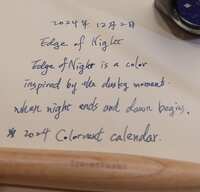 2024年 12月2日
Edge of Night
Edge of Night is a color
inspired by the dusky moment
when night ends and dawn begins.
※ 2024 Colorverse calendar.